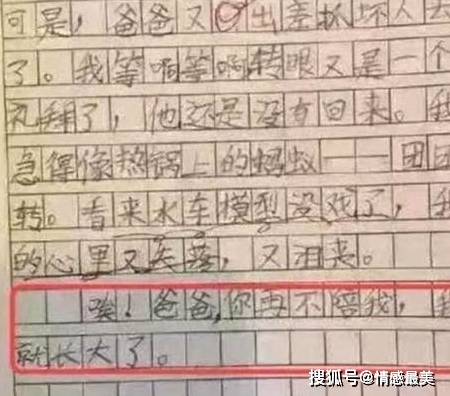 可是，爸爸又出差抓坏人去
了。我等啊等啊转眼又是一个
礼拜了，他还是没有回来。我
急得像热锅上的蚂蚁——团团
转。看来水车模型没戏了，我
的心里又失落，又沮丧。
唉！爸爸，你再不陪我，我
就长大了。
搜狐号@情感最美